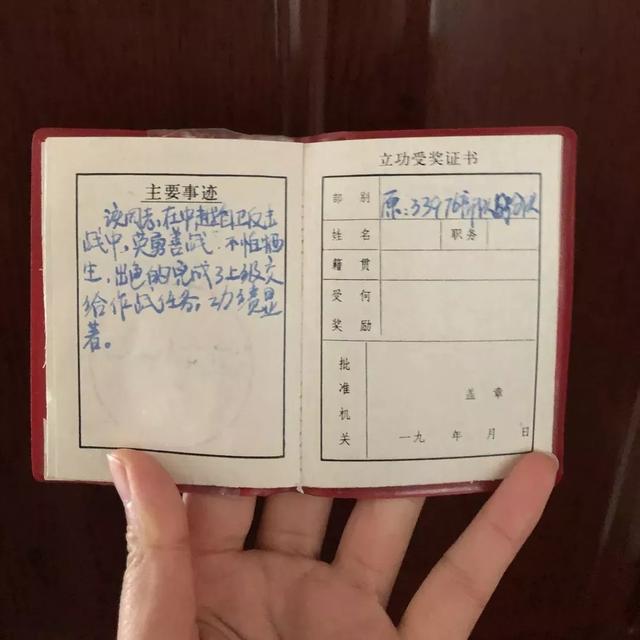 主要事迹
该同志,在中越自卫反击
战中,英勇善战.不怕牺
牲,出色的完成了上级交
给作战任务,功绩显
著。
立功受奖证书
部别 原:33976部队
姓名 职务
籍贯
受何奖励
批准机关
盖章
一九 年 月 日